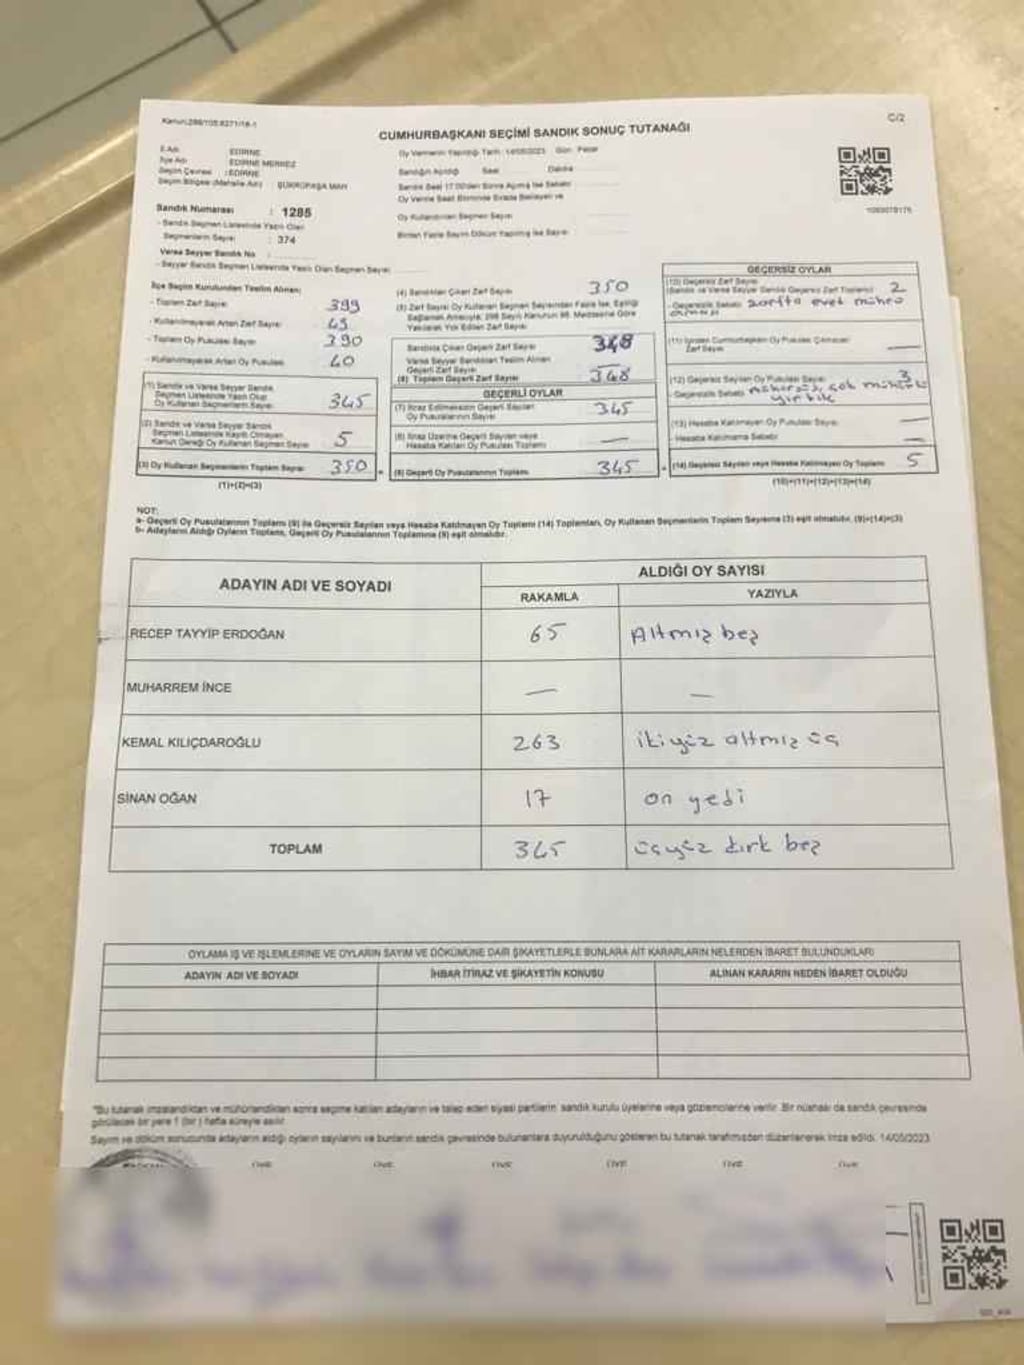 Kanun:298/105;6271/16-1
C/2
CUMHURBAŞKANI SEÇİMİ SANDIK SONUÇ TUTANAĞI
İl Adı EDİRNE
İlçe Adı EDİRNE MERKEZ
Seçim Çevresi :EDİRNE
Seçim Bölgesi (Mahalle Adı) ŞÜKRÜPAŞA MAH
Sandık Numarası : 1285
- Sandık Seçmen Listesinde Yazılı Olan
Seçmenlerin Sayısı : 374
Varsa Seyyar Sandık No :
- Seyyar Sandık Seçmen Listesinde Yazılı Olan Seçmen Sayısı
Oy Vermenin Yapıldığı Tarih : 14/05/2023 Gün: Pazar
Sandığın Açıldığı Saat Dakika
Sandık Saat 17.00'den Sonra Açılmış İse Sebebi
Oy Verme Saati Bitiminde Sırada Bekleyen ve
Oy Kullandırılan Seçmen Sayısı
Birden Fazla Sayım Döküm Yapılmış İse Sayısı
İlçe Seçim Kurulundan Teslim Alınan;
- Toplam Zarf Sayısı 399
- Kullanılmayarak Artan Zarf Sayısı 49
- Toplam Oy Pusulası Sayısı 390
- Kullanılmayarak Artan Oy Pusulası 40
(1) Sandık ve Varsa Seyyar Sandık
Seçmen Listesinde Yazılı Olup
Oy Kullanan Seçmenlerin Sayısı 345
(2) Sandık ve Varsa Seyyar Sandık
Seçmen Listesinde Kayıtlı Olmayan
Kanun Gereği Oy Kullanan Seçmen Sayısı 5
(3) Oy Kullanan Seçmenlerin Toplam Sayısı 350
(1)+(2)=(3)
(4) Sandıktan Çıkan Zarf Sayısı 350
(5) Zarf Sayısı Oy Kullanan Seçmen Sayısından Fazla İse, Eşitliği
Sağlamak Amacıyla; 298 Sayılı Kanunun 98. Maddesine Göre
Yakılarak Yok Edilen Zarf Sayısı
Sandıkta Çıkan Geçerli Zarf Sayısı 348
Varsa Seyyar Sandıktan Teslim Alınan
Geçerli Zarf Sayısı
(6) Toplam Geçerli Zarf Sayısı 348
GEÇERLİ OYLAR
(7) İtiraz Edilmeksizin Geçerli Sayılan
Oy Pusulalarının Sayısı 345
(8) İtiraz Üzerine Geçerli Sayılan veya
Hesaba Katılan Oy Pusulası Toplamı —
(9) Geçerli Oy Pusulalarının Toplamı 345
GEÇERSİZ OYLAR
(10) Geçersiz Zarf Sayısı
(Sandık ve Varsa Seyyar Sandık Geçersiz Zarf Toplamı) 2
- Geçersizlik Sebebi zarfta evet mührü
(11) İçinden Cumhurbaşkanı Oy Pusulası Çıkmayan
Zarf Sayısı —
(12) Geçersiz Sayılan Oy Pusulası Sayısı 3
- Geçersizlik Sebebi mühürsüz, çok mühürlü
yırtık
(13) Hesaba Katılmayan Oy Pusulası Sayısı —
- Hesaba Katılmama Sebebi —
(14) Geçersiz Sayılan veya Hesaba Katılmayan Oy Toplamı 5
(10)+(11)+(12)+(13)=(14)
NOT:
a- Geçerli Oy Pusulalarının Toplamı (9) ile Geçersiz Sayılan veya Hesaba Katılmayan Oy Toplamı (14) Toplamları, Oy Kullanan Seçmenlerin Toplam Sayısına (3) eşit olmalıdır. (9)+(14)=(3)
b- Adayların Aldığı Oyların Toplamı, Geçerli Oy Pusulalarının Toplamına (9) eşit olmalıdır.
ADAYIN ADI VE SOYADI
ALDIĞI OY SAYISI
RAKAMLA YAZIYLA
RECEP TAYYİP ERDOĞAN 65 Altmış beş
MUHARREM İNCE — —
KEMAL KILIÇDAROĞLU 263 ikiyüz altmış üç
SİNAN OĞAN 17 on yedi
TOPLAM 345 üçyüz kırk beş
OYLAMA İŞ VE İŞLEMLERİNE VE OYLARIN SAYIM VE DÖKÜMÜNE DAİR ŞİKAYETLERLE BUNLARA AİT KARARLARIN NELERDEN İBARET BULUNDUKLARI
ADAYIN ADI VE SOYADI İHBAR İTİRAZ VE ŞİKAYETİN KONUSU ALINAN KARARIN NEDEN İBARET OLDUĞU
"Bu tutanak imzalandıktan ve mühürlendikten sonra seçime katılan adayların ve talep eden siyasi partilerin sandık kurulu üyelerine veya gözlemcilerine verilir. Bir nüshası da sandık çevresinde
görülecek bir yere 1 (bir) hafta süreyle asılır.
Sayım ve döküm sonucunda adayların aldığı oyların sayılarını ve bunların sandık çevresinde bulunanlara duyurulduğunu gösteren bu tutanak tarafımızdan düzenlenerek imza edildi. 14/05/2023